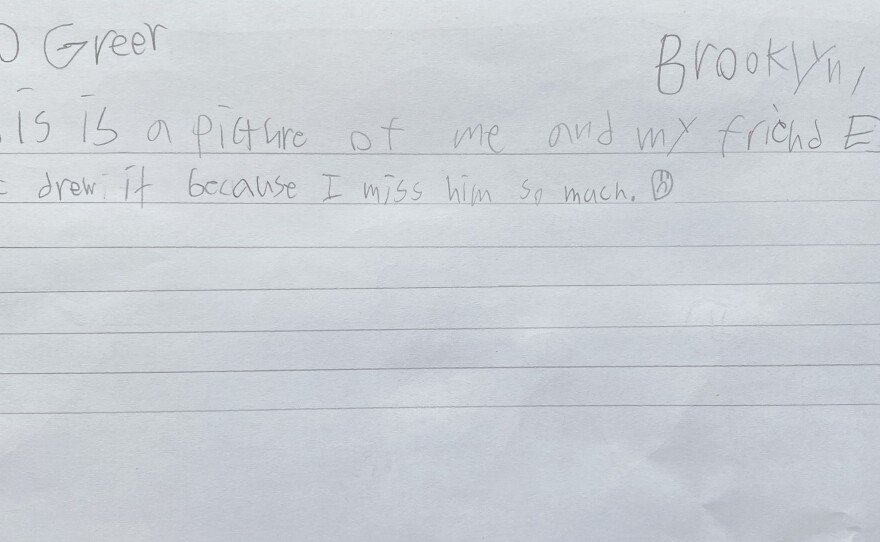 O Greer Brooklyn,
is is a picture of me and my friend E
drew it because I miss him so much.